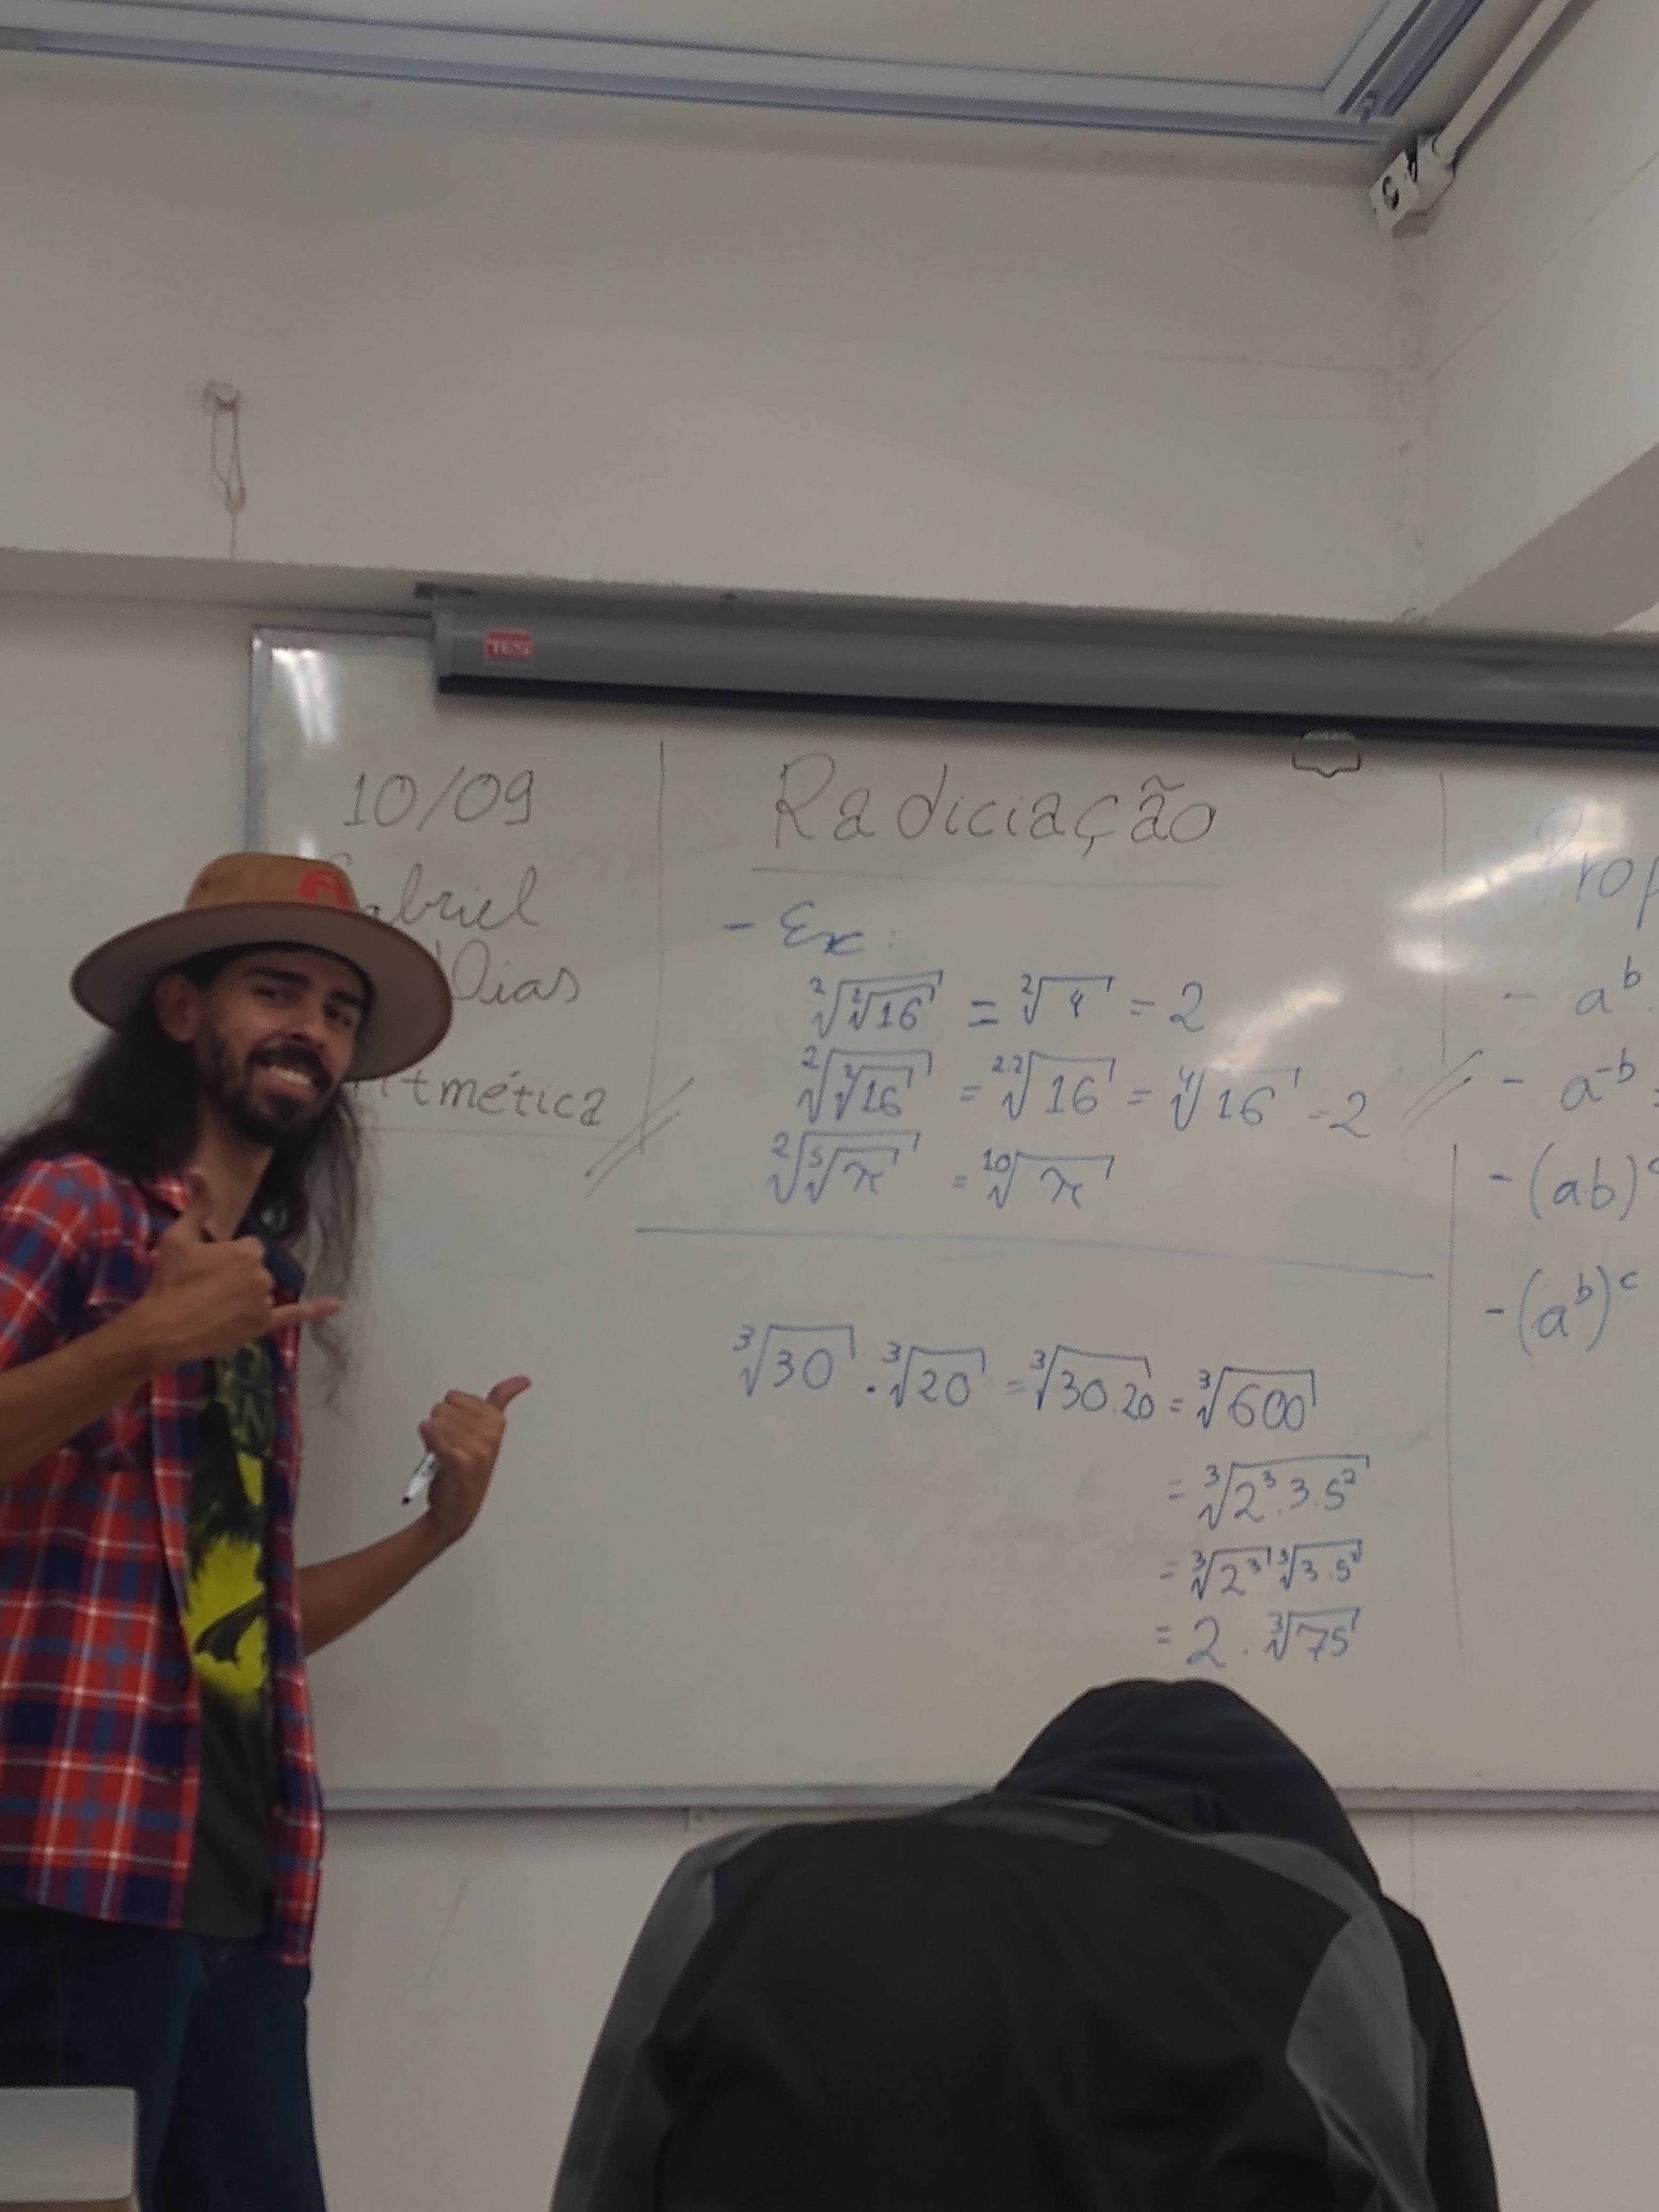 10/09
Gabriel
Dias
Aritmética
Radiciação
- Ex:
²√²√16 = ²√4 = 2
²√²√16 = ²·²√16 = ⁴√16 = 2
²√⁵√x = ¹⁰√x
³√30 . ³√20 = ³√30.20 = ³√600
= ³√2³.3.5²
= ³√2³ ³√3.5²
= 2 . ³√75
Prop
- a^b .
- a^-b =
- (ab)^c
- (a^b)^c